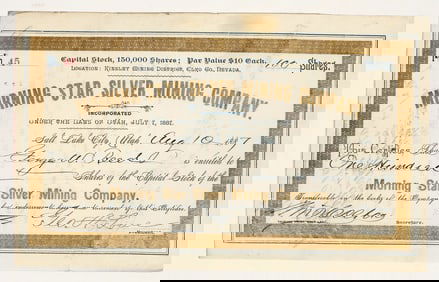 45
Capital Stock, 150,000 Shares; Par Value $10 Each.
Shares.
Location: Kinsley Mining District, Elko Co., Nevada.
MORNING STAR SILVER MINING COMPANY.
INCORPORATED
UNDER THE LAWS OF UTAH, JULY 1, 1887.
Salt Lake City, Utah, Aug 10 1887
This Certifies, that
George M. is entitled to
One Hundred
Shares of the Capital Stock of the
Morning Star Silver Mining Company.
Transferable on the books of the Company
by endorsement hereon and surrender of this Certificate.
Secretary.
President.